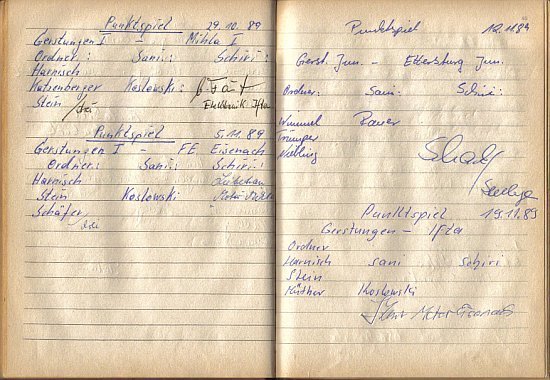 Punktspiel 29.10.89
Gerstungen I - Mihla I
Ordner: Sani: Schiri:
Harnisch
Katzenberger Koslowski:
Stein Elektronik Ifta
Punktspiel 5.11.89
Gerstungen I - FE Eisenach
Ordner: Sani: Schiri:
Harnisch
Stein Koslowski Motor
Schäfer
Punktspiel 12.11.89
Gerst. Jun. - Jun.
Ordner: Sani: Schiri:
Wummel Bauer
Trümper
Punktspiel 19.11.89
Gerstungen - Ifta
Ordner
Harnisch Sani Schiri
Stein
Koslowski
Motor Eisenach